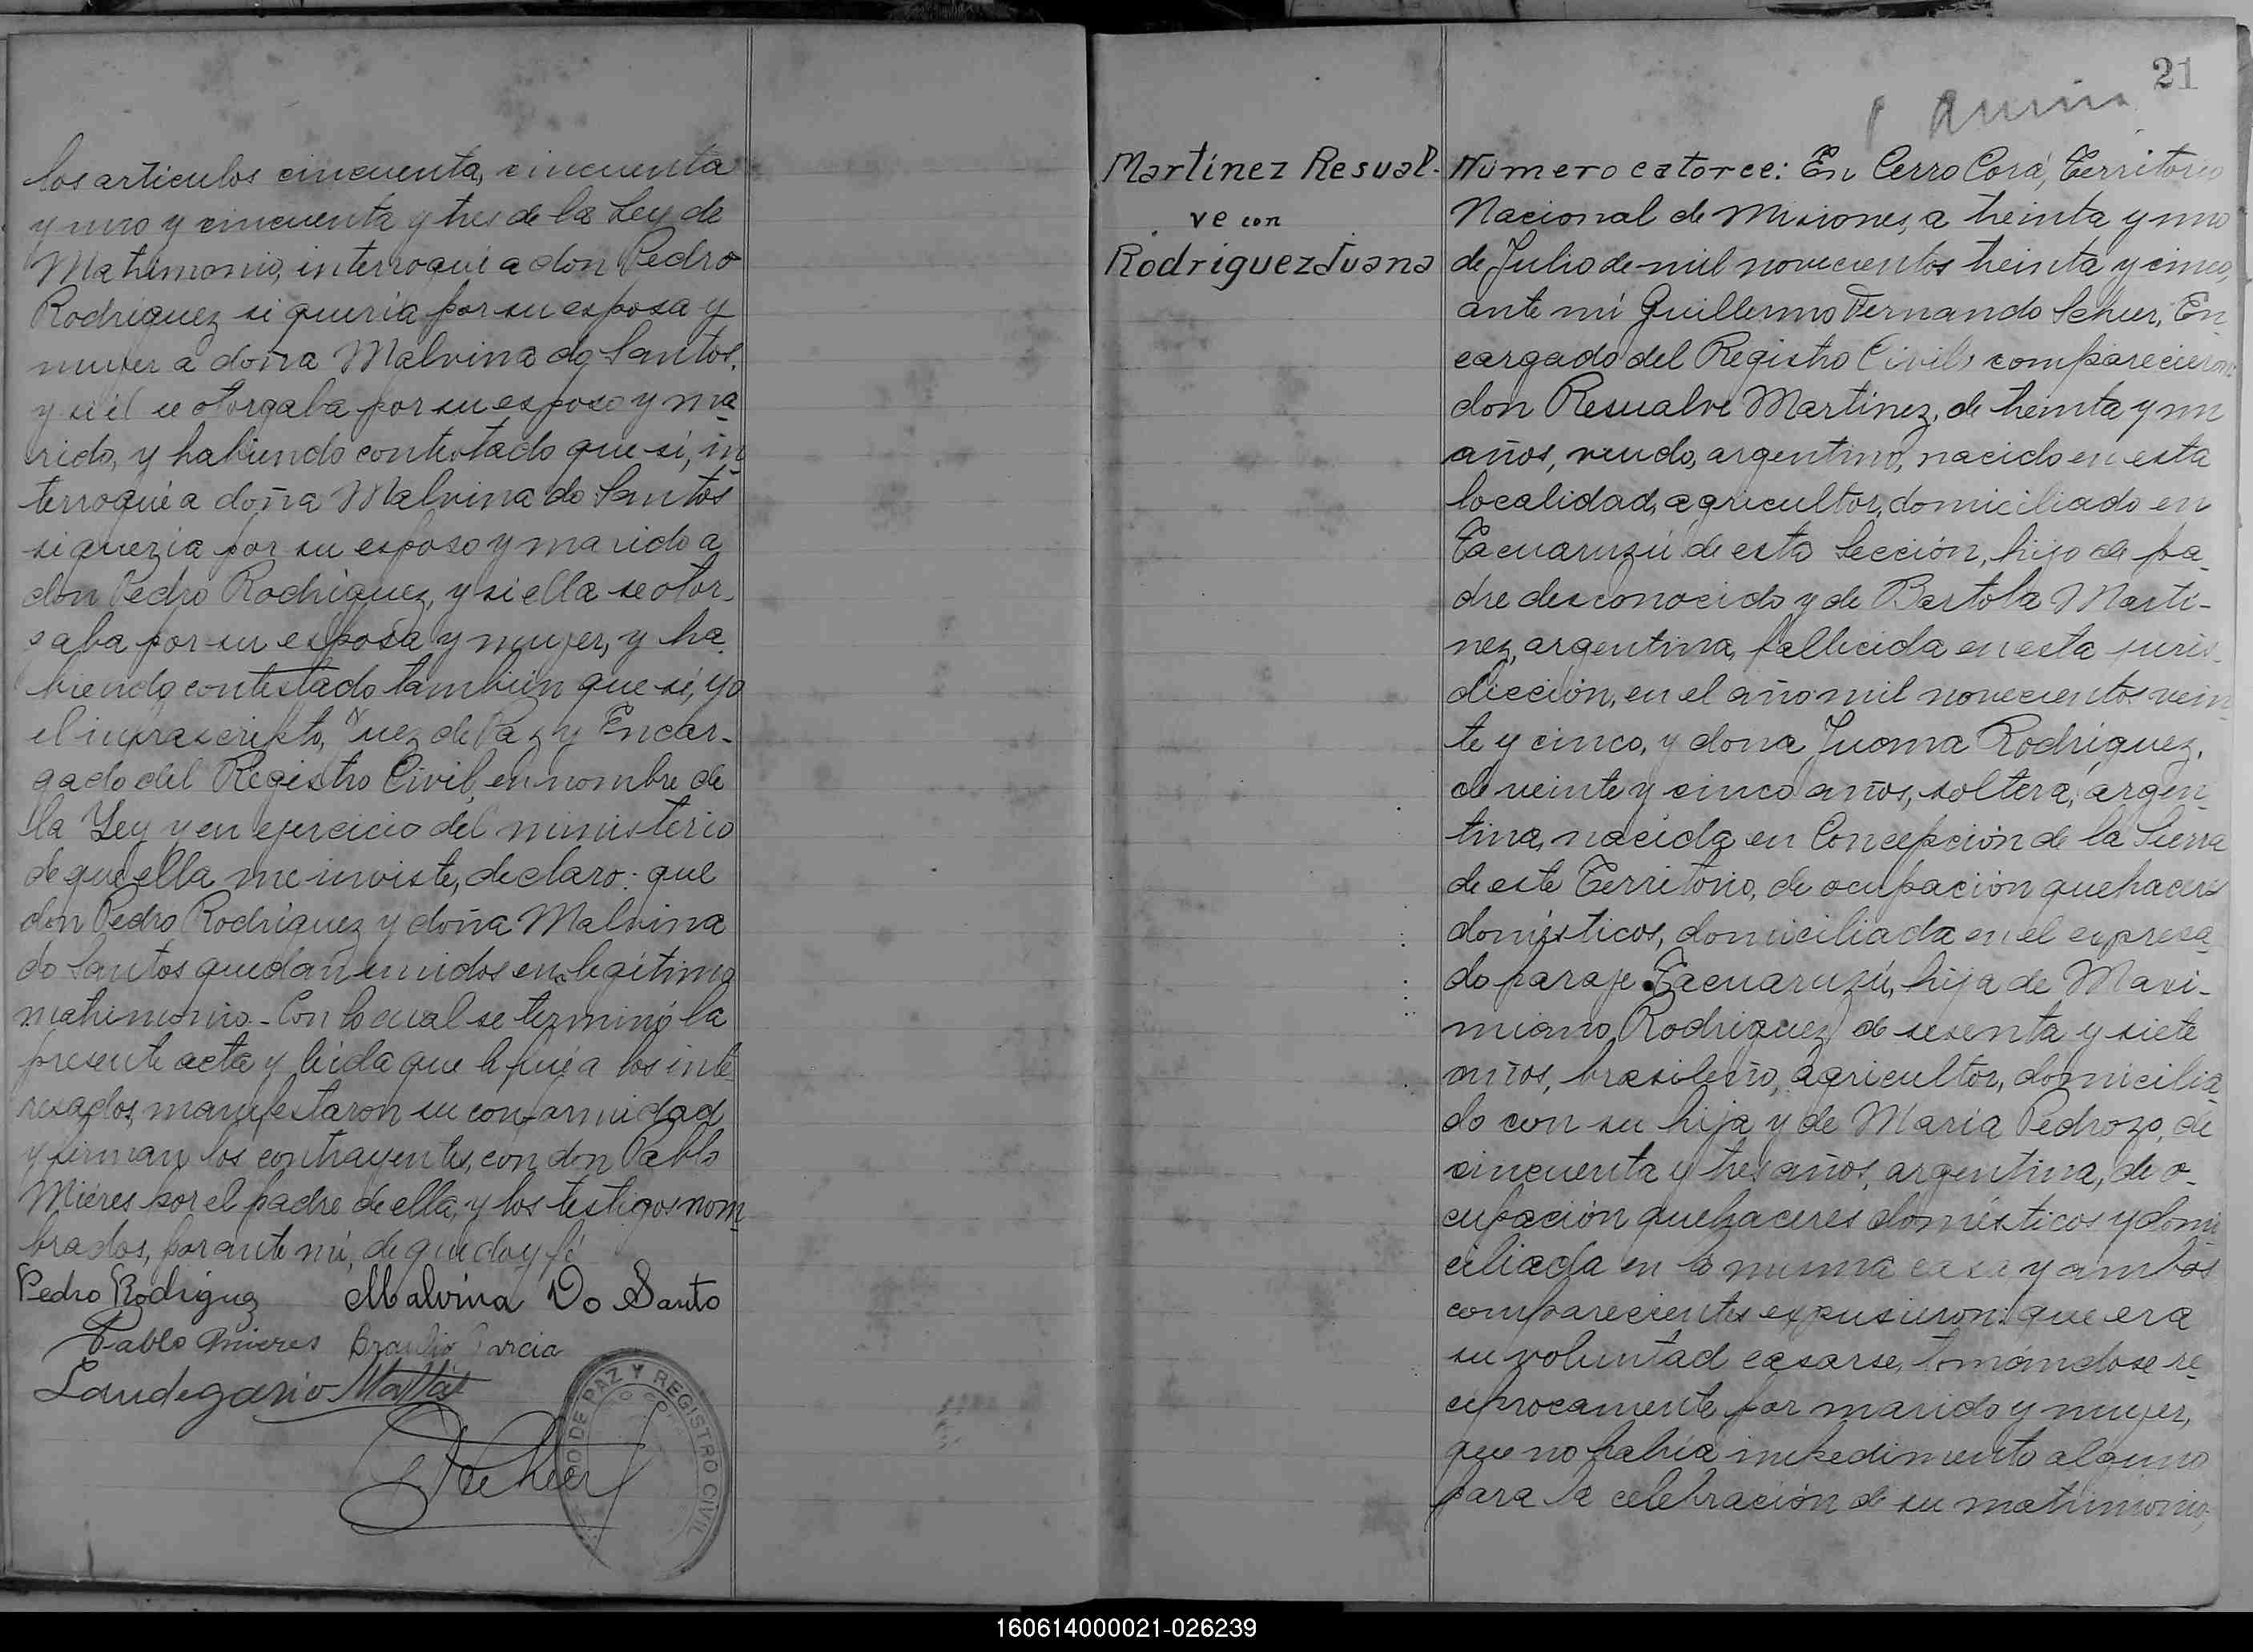 los articulos cincuenta, cincuenta
y uno y cincuenta y tres de la Ley de
Matrimonio, interroqué a don Pedro
Rodriguez si queria por su esposa y
mujer a doña Malvina do Santos,
y si él se otorgaba por su esposo y ma
rido, y habiendo contestado que si, in
terroqué a doña Malvina do Santos
si queria por su esposo y marido a
don Pedro Rodriguez, y si ella se otor-
gaba por su esposa y mujer, y ha
biendo contestado también que si, yo
el infrascripto, Juez de Paz y Encar-
gado del Registro Civil, en nombre de
la Ley y en ejercicio del ministerio
de que ella me inviste, declaro: que
don Pedro Rodriguez y doña Malvina
do Santos quedan unidos en legitimo
matrimonio - Con lo cual se terminó la
presente acta y leida que le fué a los inte
resados, manifestaron su conformidad
y firman los contrayentes, con don Pablo
Mieres por el padre de ella, y los testigos nom
brados, por ante mi, de que doy fé
Pedro Rodriguez Malvina Do Santo
Pablo Mieres Braulio Garcia
Landegario
DE PAZ Y REGISTRO CIVIL
21
Martinez Resual-
ve con
Rodriguez Juana
Número catorce: En Cerro Corá, Territorio
Nacional de Misiones, a treinta y uno
de Julio de mil novecientos treinta y cinco,
ante mi Guillermo Fernando Scheer, En
cargado del Registro Civil, comparecieron
don Resualve Martinez, de treinta y un
años, viudo, argentino, nacido en esta
localidad, agricultor, domiciliado en
Tacuaruzú de esta Sección, hijo de pa
dre desconocido y de Bartola Marti-
nez, argentina, fallecida en esta juris-
dicción, en el año mil novecientos vein
te y cinco, y dona Juana Rodriguez,
de veinte y cinco años, soltera, argen-
tina, nacida en Concepción de la Sierra
de este Territorio, de ocupación quehaceres
domésticos, domiciliada en el expresa
do paraje Tacuaruzú, hija de Maxi-
miano Rodriguez de sesenta y siete
años, brasileño, agricultor, domicilia
do con su hija y de Maria Pedrozo, de
cincuenta y tres años, argentina, de o-
cupación quehaceres domésticos y domi
ciliada en la misma casa y ambos
comparecientes expusieron: que era
su voluntad casarse, tomándose re-
ciprocamente por marido y mujer,
que no habia impedimento alguno
para la celebración de su matrimonio,
160614000021-026239